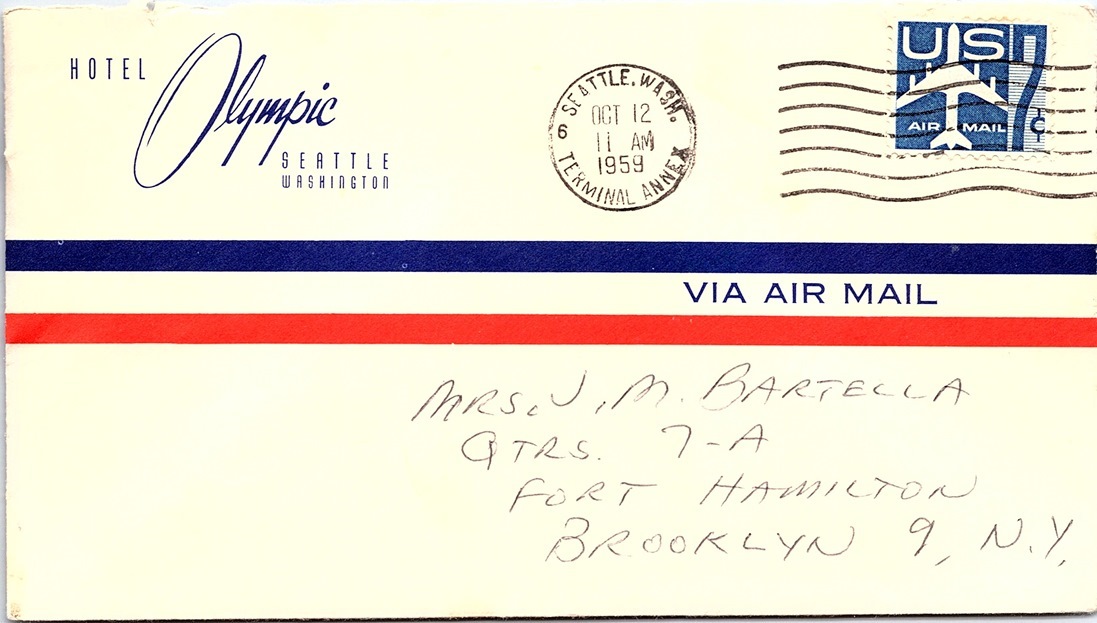 HOTEL
Olympic
SEATTLE
WASHINGTON
SEATTLE, WASH.
6
OCT 12
11 AM
1959
TERMINAL ANNEX
US 7¢
AIR MAIL
VIA AIR MAIL
MRS. J. M. BARTELLA
QTRS. 7-A
FORT HAMILTON
BROOKLYN 9, N.Y.